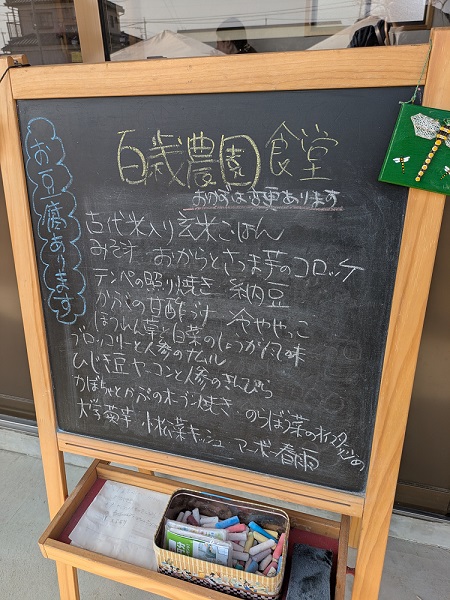 百歳農園食堂
おかずは変更あります
お豆腐あります
古代米入り玄米ごはん
みそ汁 おからとさつま芋のコロッケ
テンペの照り焼き 納豆
かぶの甘酢づけ 冷ややっこ
ほうれん草と白菜のしょうがみそ味
ブロッコリーと人参のナムル
ひじき豆 ヤーコンと人参のきんぴら
かぼちゃとかぶのオーブン焼き のらぼう菜のオイスター炒め
大学菊芋 小松菜キッシュ マーボー春雨